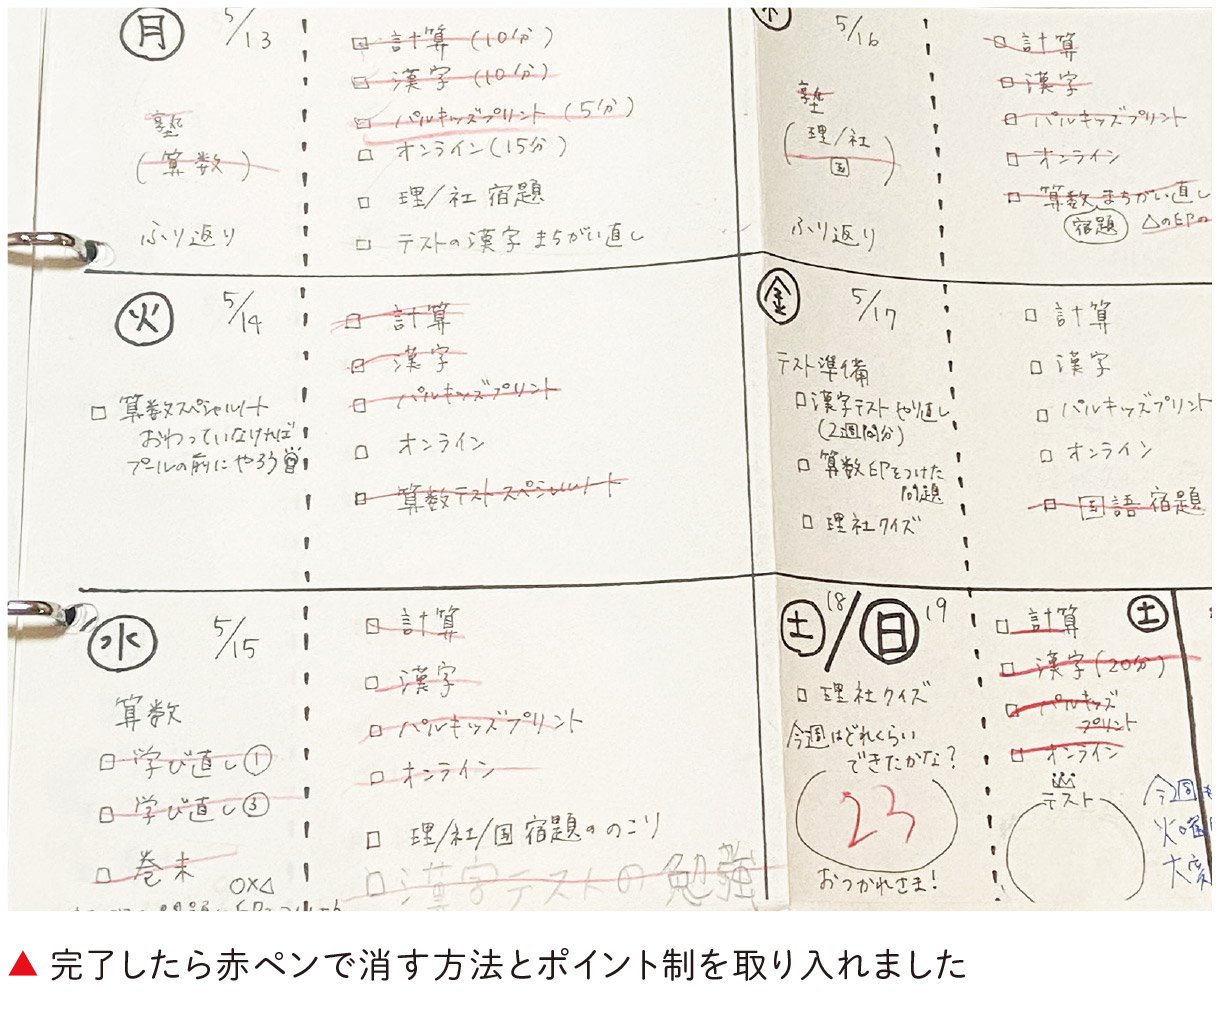 月
5/13
塾
(算数)
ふり返り
□ 計算(10分)
□ 漢字(10分)
□ パルキッズプリント(5分)
□ オンライン(15分)
□ 理/社 宿題
□ テストの漢字 まちがい直し
火
5/14
□ 算数スペシャルノート
おわっていなければ
プールの前にやろう
□ 計算
□ 漢字
□ パルキッズプリント
□ オンライン
□ 算数テストスペシャルノート
水
5/15
算数
□ 学び直し①
□ 学び直し③
□ 巻末
○×△
□ 計算
□ 漢字
□ パルキッズプリント
□ オンライン
□ 理/社/国 宿題ののこり
□ 漢字テストの勉強
木
5/16
塾
(理/社
国)
ふり返り
□ 計算
□ 漢字
□ パルキッズプリント
□ オンライン
□ 算数 まちがい直し
宿題 △の印の
金
5/17
テスト準備
□ 漢字テスト やり直し
(2週間分)
□ 算数 印をつけた
問題
□ 理社クイズ
□ 計算
□ 漢字
□ パルキッズプリント
□ オンライン
□ 国語 宿題
土/日
18 19
□ 理社クイズ
今週はどれくらい
できたかな?
23
おつかれさま!
□ 計算
土
□ 漢字(20分)
□ パルキッズ
プリント
□ オンライン
テスト
今回も
火曜
▲ 完了したら赤ペンで消す方法とポイント制を取り入れました